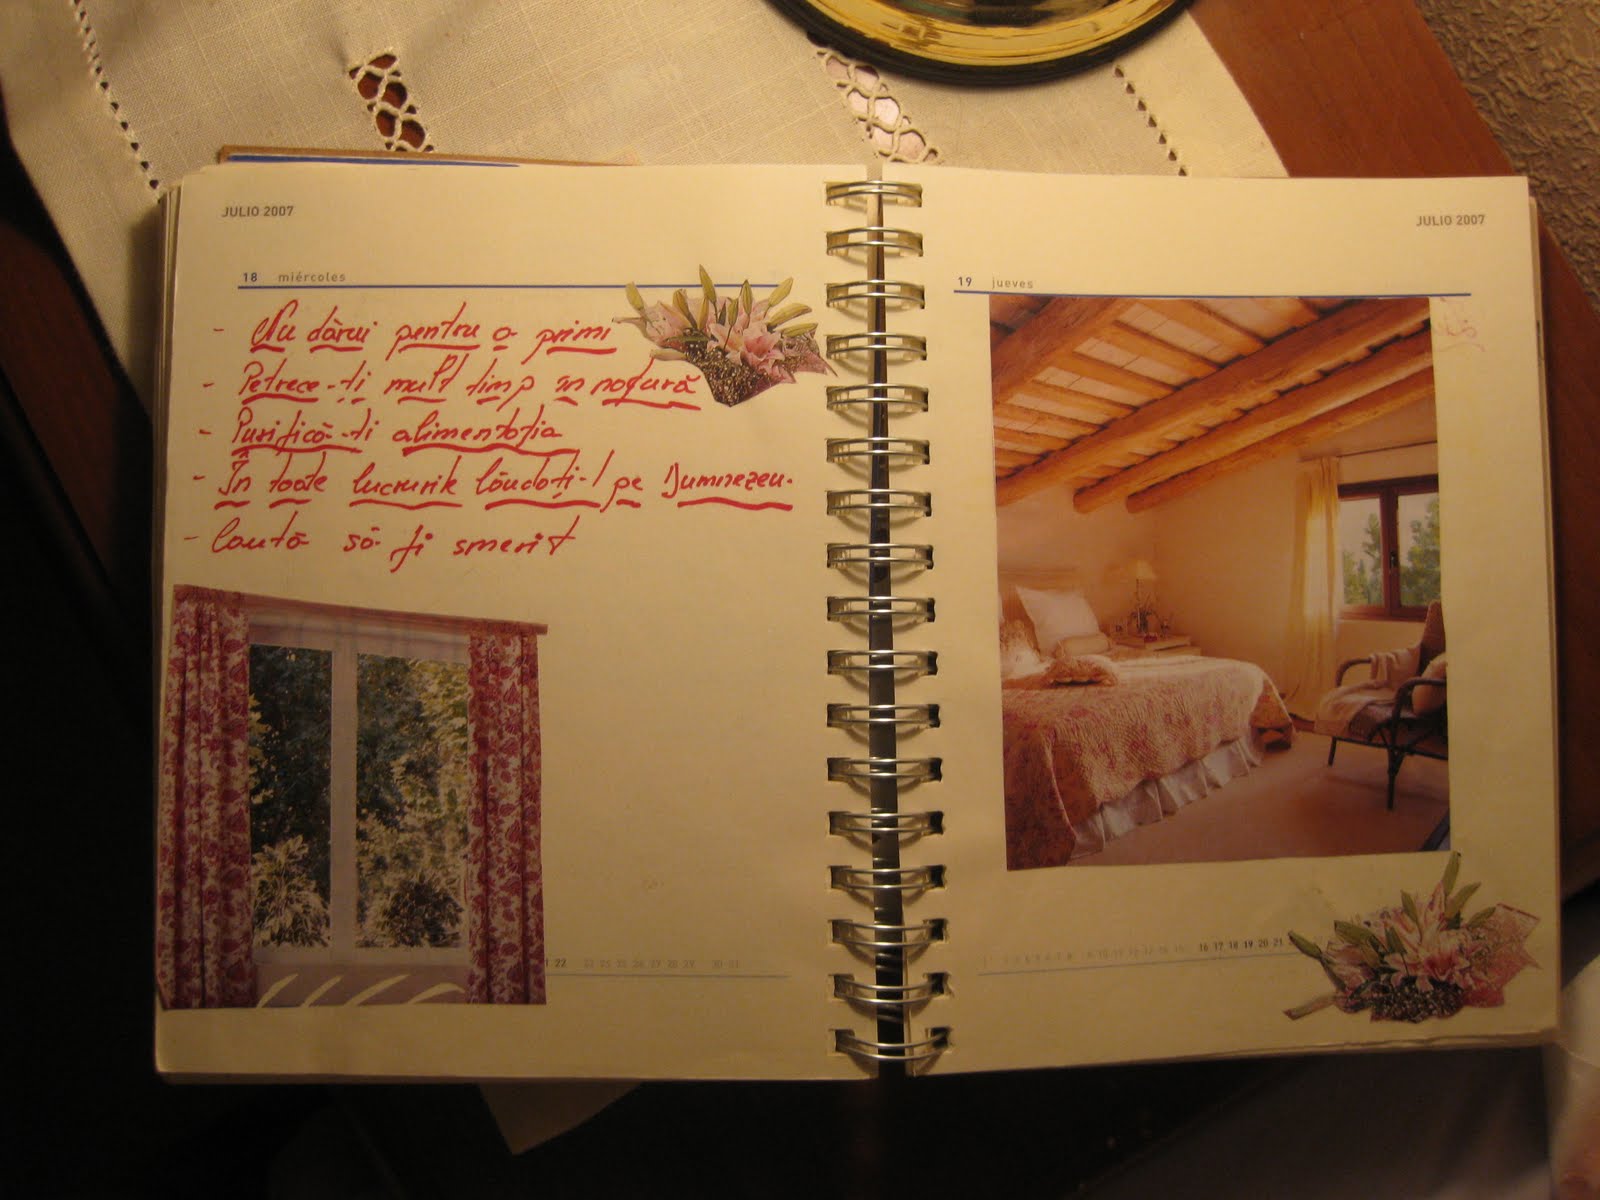 JULIO 2007
18 miércoles
- Nu dărui pentru a primi
- Petrece-ți mult timp în natură
- Purifică-ți alimentația
- În toate lucrurile lăudați-l pe Dumnezeu.
- Caută să fi smerit
22
JULIO 2007
19 jueves
16 17 18 19 20 21